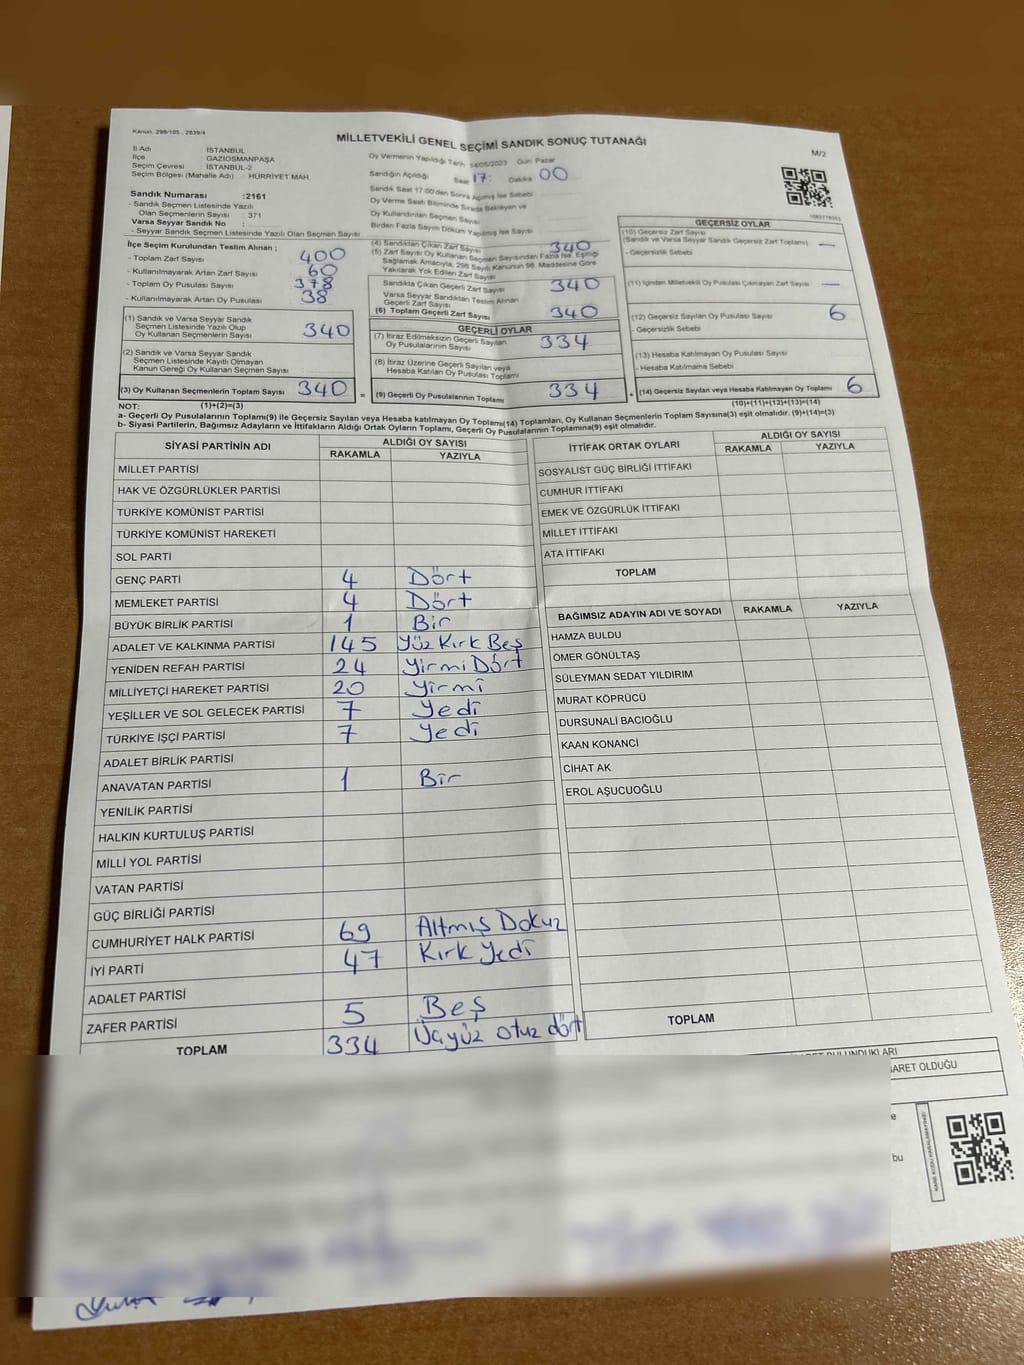 Kanun: 298/105 , 2839/4
MİLLETVEKİLİ GENEL SEÇİMİ SANDIK SONUÇ TUTANAĞI
M/2
İl Adı : İSTANBUL
İlçe : GAZİOSMANPAŞA
Seçim Çevresi : İSTANBUL-2
Seçim Bölgesi (Mahalle Adı) : HÜRRİYET MAH.
Sandık Numarası :2161
- Sandık Seçmen Listesinde Yazılı
Olan Seçmenlerin Sayısı : 371
Varsa Seyyar Sandık No :
- Seyyar Sandık Seçmen Listesinde Yazılı Olan Seçmen Sayısı
Oy Vermenin Yapıldığı Tarih 14/05/2023 Gün Pazar
Sandığın Açıldığı Saat 17: Dakika 00
Sandık Saat 17.00'den Sonra Açılmış İse Sebebi
Oy Verme Saati Bitiminde Sırada Bekleyen ve
Oy Kullandırılan Seçmen Sayısı
Birden Fazla Sayım Döküm Yapılmış İse Sayısı
İlçe Seçim Kurulundan Teslim Alınan ;
- Toplam Zarf Sayısı 400
- Kullanılmayarak Artan Zarf Sayısı 60
- Toplam Oy Pusulası Sayısı 378
- Kullanılmayarak Artan Oy Pusulası 38
(1) Sandık ve Varsa Seyyar Sandık
Seçmen Listesinde Yazılı Olup
Oy Kullanan Seçmenlerin Sayısı 340
(2) Sandık ve Varsa Seyyar Sandık
Seçmen Listesinde Kayıtlı Olmayan
Kanun Gereği Oy Kullanan Seçmen Sayısı
(3) Oy Kullanan Seçmenlerin Toplam Sayısı 340 =
(1)+(2)=(3)
(4) Sandıktan Çıkan Zarf Sayısı 340
(5) Zarf Sayısı Oy Kullanan Seçmen Sayısından Fazla İse, Eşitliği
Sağlamak Amacıyla, 298 Sayılı Kanunun 98. Maddesine Göre
Yakılarak Yok Edilen Zarf Sayısı
Sandıkta Çıkan Geçerli Zarf Sayısı 340
Varsa Seyyar Sandıktan Teslim Alınan
Geçerli Zarf Sayısı
(6) Toplam Geçerli Zarf Sayısı 340
GEÇERLİ OYLAR
(7) İtiraz Edilmeksizin Geçerli Sayılan
Oy Pusulalarının Sayısı 334
(8) İtiraz Üzerine Geçerli Sayılan veya
Hesaba Katılan Oy Pusulası Toplamı
(9) Geçerli Oy Pusulalarının Toplamı 334 +
GEÇERSİZ OYLAR
(10) Geçersiz Zarf Sayısı
(Sandık ve Varsa Seyyar Sandık Geçersiz Zarf Toplamı) —
- Geçersizlik Sebebi
(11) İçinden Milletvekili Oy Pusulası Çıkmayan Zarf Sayısı —
(12) Geçersiz Sayılan Oy Pusulası Sayısı 6
- Geçersizlik Sebebi
(13) Hesaba Katılmayan Oy Pusulası Sayısı
- Hesaba Katılmama Sebebi
(14) Geçersiz Sayılan veya Hesaba Katılmayan Oy Toplamı 6
(10)+(11)+(12)+(13)=(14)
NOT:
a- Geçerli Oy Pusulalarının Toplamı(9) ile Geçersiz Sayılan veya Hesaba katılmayan Oy Toplamı(14) Toplamları, Oy Kullanan Seçmenlerin Toplam Sayısına(3) eşit olmalıdır. (9)+(14)=(3)
b- Siyasi Partilerin, Bağımsız Adayların ve İttifakların Aldığı Ortak Oyların Toplamı, Geçerli Oy Pusulalarının Toplamına(9) eşit olmalıdır.
SİYASİ PARTİNİN ADI ALDIĞI OY SAYISI
RAKAMLA YAZIYLA
MİLLET PARTİSİ
HAK VE ÖZGÜRLÜKLER PARTİSİ
TÜRKİYE KOMÜNİST PARTİSİ
TÜRKİYE KOMÜNİST HAREKETİ
SOL PARTİ
GENÇ PARTİ 4 Dört
MEMLEKET PARTİSİ 4 Dört
BÜYÜK BİRLİK PARTİSİ 1 Bir
ADALET VE KALKINMA PARTİSİ 145 Yüz Kırk Beş
YENİDEN REFAH PARTİSİ 24 Yirmi Dört
MİLLİYETÇİ HAREKET PARTİSİ 20 Yirmi
YEŞİLLER VE SOL GELECEK PARTİSİ 7 Yedi
TÜRKİYE İŞÇİ PARTİSİ 7 Yedi
ADALET BİRLİK PARTİSİ
ANAVATAN PARTİSİ 1 Bir
YENİLİK PARTİSİ
HALKIN KURTULUŞ PARTİSİ
MİLLİ YOL PARTİSİ
VATAN PARTİSİ
GÜÇ BİRLİĞİ PARTİSİ
CUMHURİYET HALK PARTİSİ 69 Altmış Dokuz
İYİ PARTİ 47 Kırk Yedi
ADALET PARTİSİ
ZAFER PARTİSİ 5 Beş
TOPLAM 334 Üçyüz otuz dört
İTTİFAK ORTAK OYLARI ALDIĞI OY SAYISI
RAKAMLA YAZIYLA
SOSYALİST GÜÇ BİRLİĞİ İTTİFAKI
CUMHUR İTTİFAKI
EMEK VE ÖZGÜRLÜK İTTİFAKI
MİLLET İTTİFAKI
ATA İTTİFAKI
TOPLAM
BAĞIMSIZ ADAYIN ADI VE SOYADI RAKAMLA YAZIYLA
HAMZA BULDU
ÖMER GÖNÜLTAŞ
SÜLEYMAN SEDAT YILDIRIM
MURAT KÖPRÜCÜ
DURSUNALİ BACIOĞLU
KAAN KONANCİ
CİHAT AK
EROL AŞUCUOĞLU
TOPLAM
BULUNDUKLARI
ARET OLDUĞU
bu